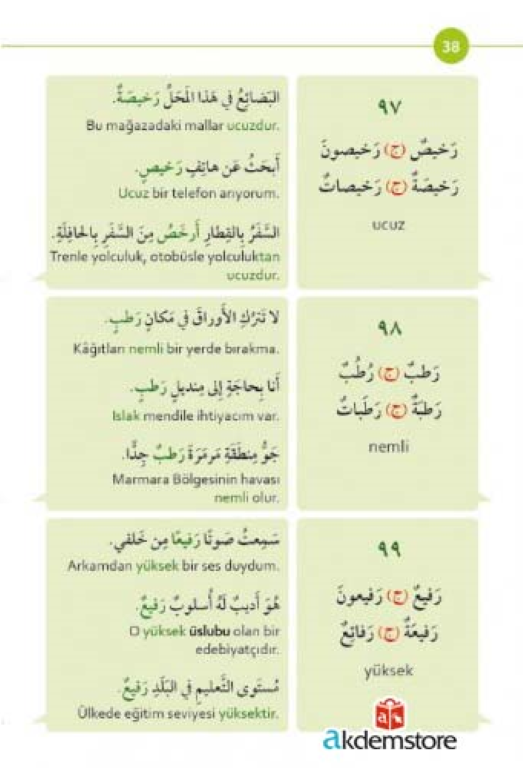 38
٩٧
رَخيصٌ (ج) رَخيصونَ
رَخيصَةٌ (ج) رَخيصاتٌ
ucuz
البَضائِعُ في هَذا المَحَلِّ رَخيصَةٌ.
Bu mağazadaki mallar ucuzdur.
أَبحَثُ عَن هاتِفٍ رَخيصٍ.
Ucuz bir telefon arıyorum.
السَّفَرُ بِالقِطارِ أَرخَصُ مِنَ السَّفَرِ بِالحافِلَةِ.
Trenle yolculuk, otobüsle yolculuktan
ucuzdur.
٩٨
رَطبٌ (ج) رُطُبٌ
رَطبَةٌ (ج) رَطَباتٌ
nemli
لا تَترُكِ الأَوراقَ في مَكانٍ رَطبٍ.
Kâğıtları nemli bir yerde bırakma.
أَنا بِحاجَةٍ إِلى مِنديلٍ رَطبٍ.
Islak mendile ihtiyacım var.
جَوُّ مِنطَقَةِ مَرمَرَةَ رَطبٌ جِدًّا.
Marmara Bölgesinin havası
nemli olur.
٩٩
رَفيعٌ (ج) رَفيعونَ
رَفيعَةٌ (ج) رَفائِعُ
yüksek
سَمِعتُ صَوتًا رَفيعًا مِن خَلفي.
Arkamdan yüksek bir ses duydum.
هُوَ أَديبٌ لَهُ أُسلوبٌ رَفيعٌ.
O yüksek üslubu olan bir
edebiyatçıdır.
مُستَوى التَّعليمِ في البَلَدِ رَفيعٌ.
Ülkede eğitim seviyesi yüksektir.
akdemstore